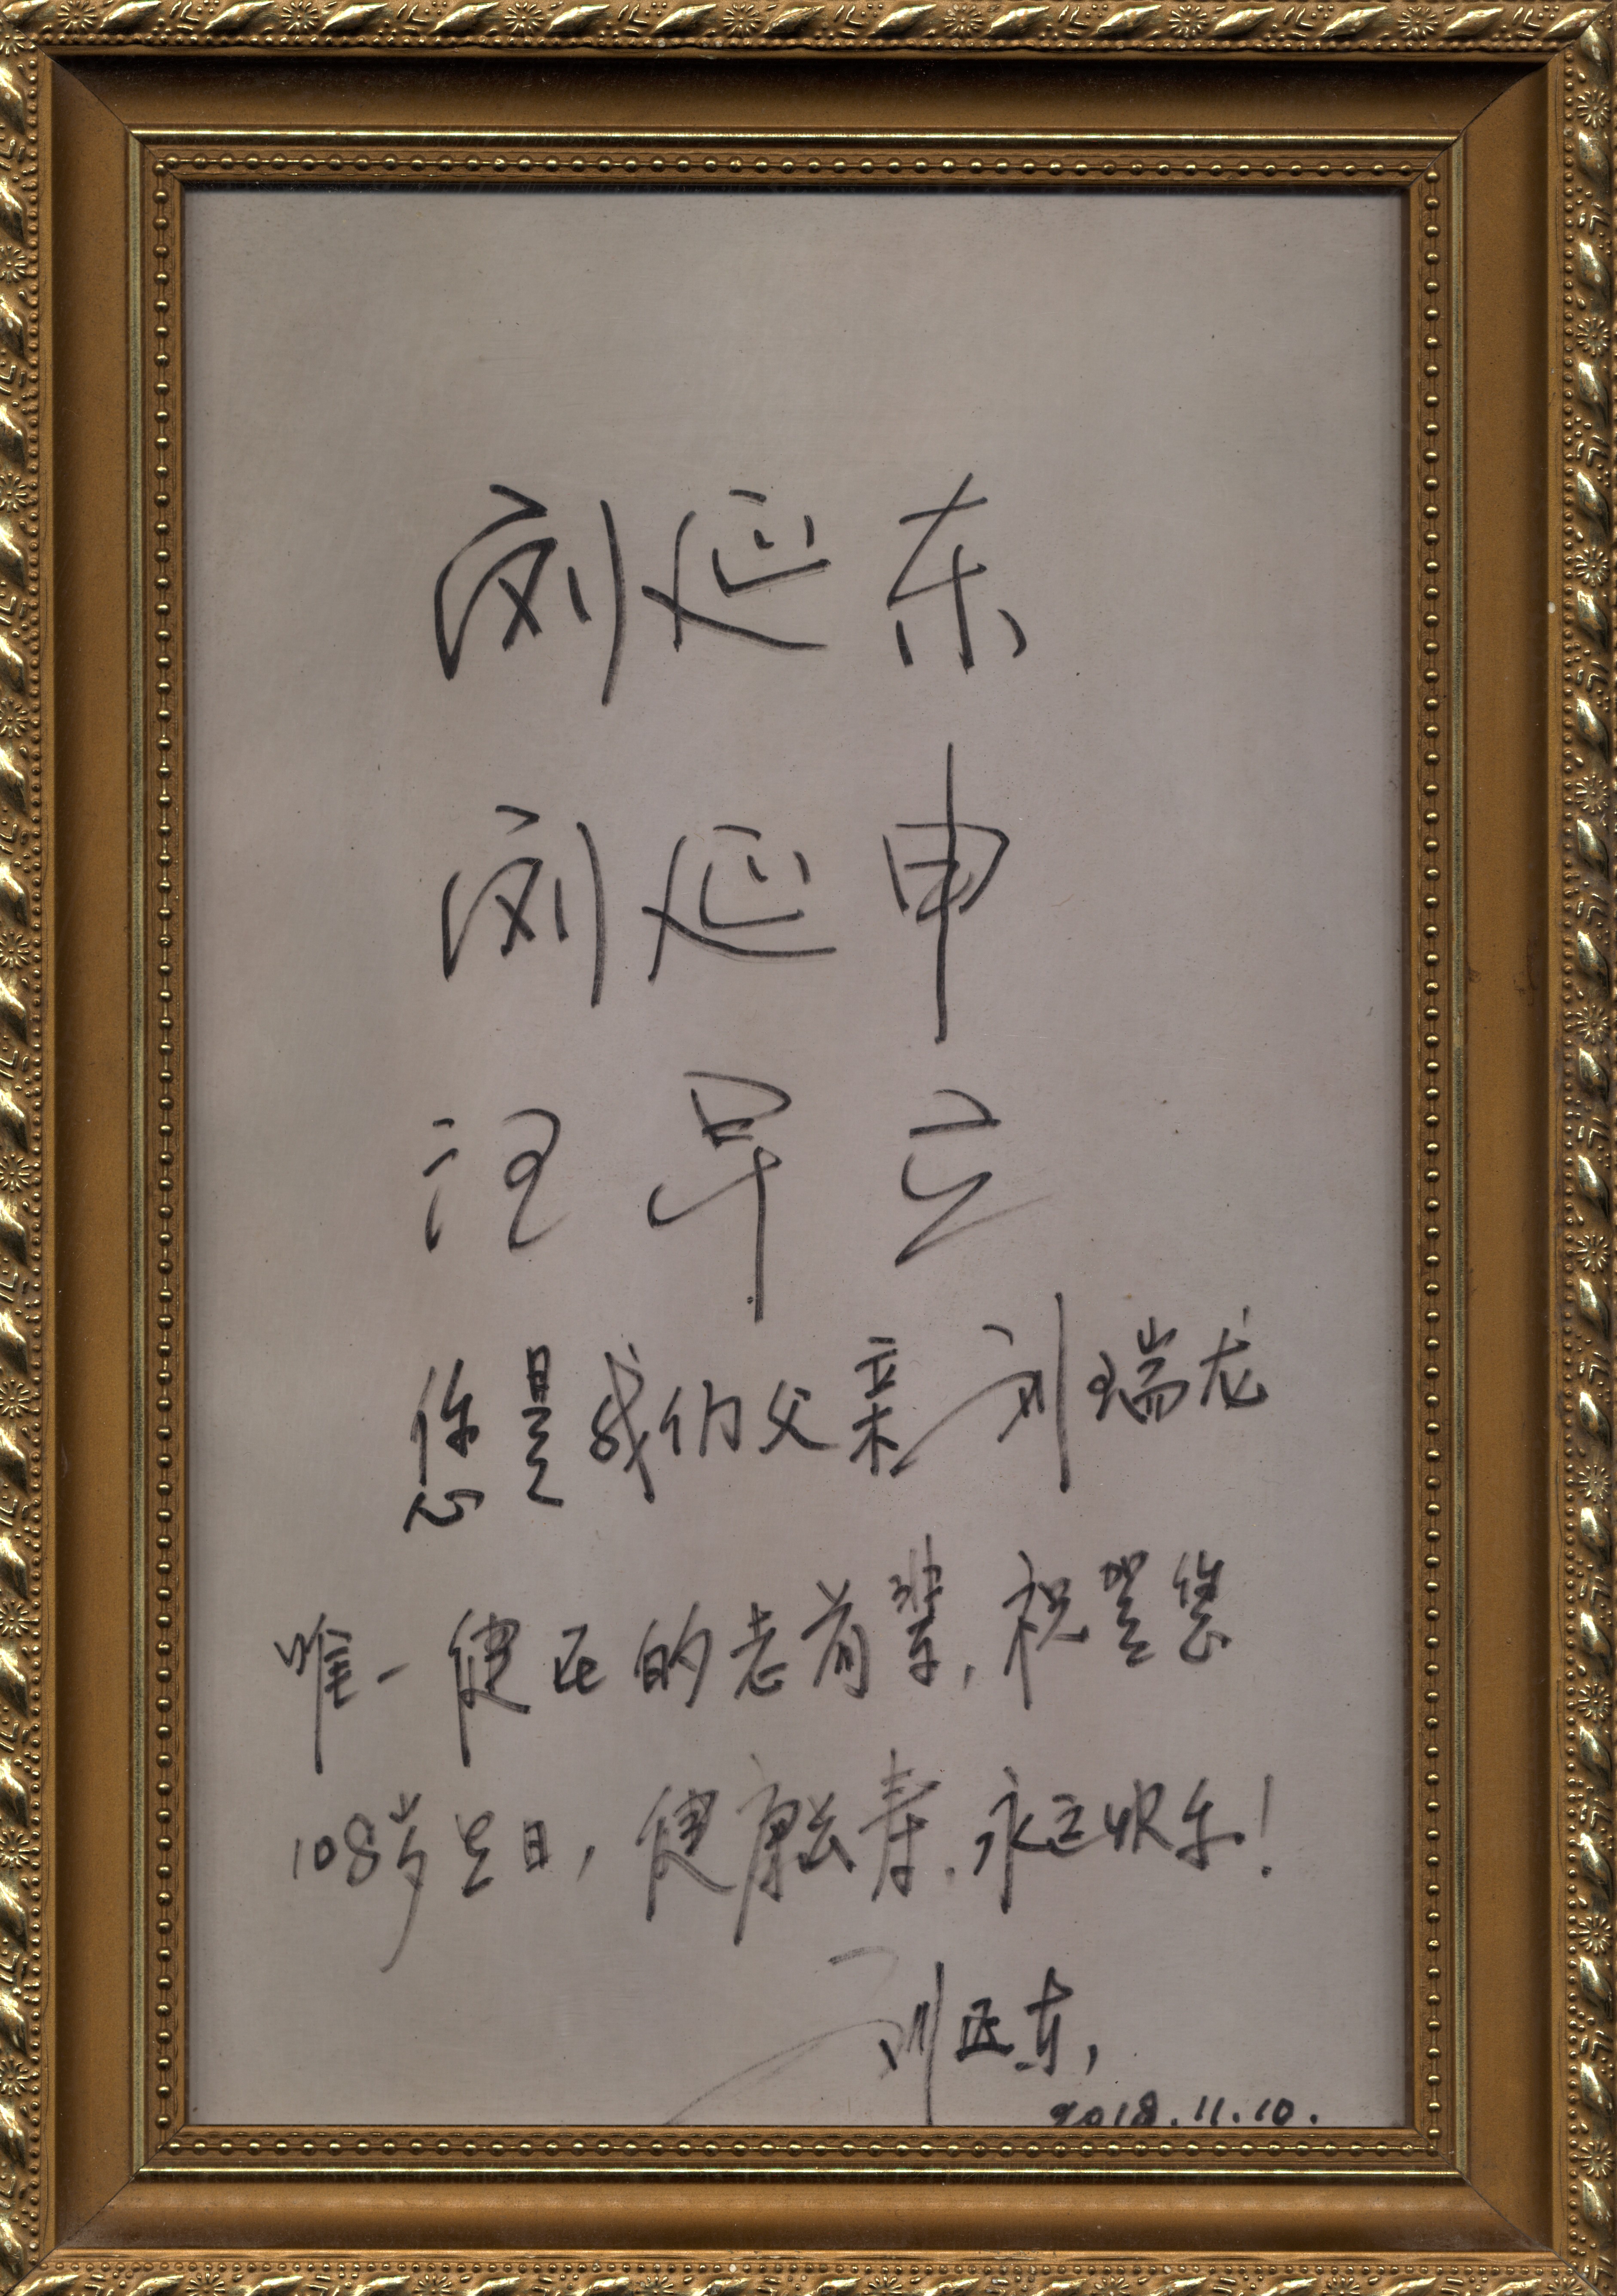 刘延东
刘延申
汪早立
您是我们父亲刘瑞龙
唯一健在的老前辈,祝贺您
108岁生日,健康长寿.永远快乐!
刘延东,
2018.11.10.